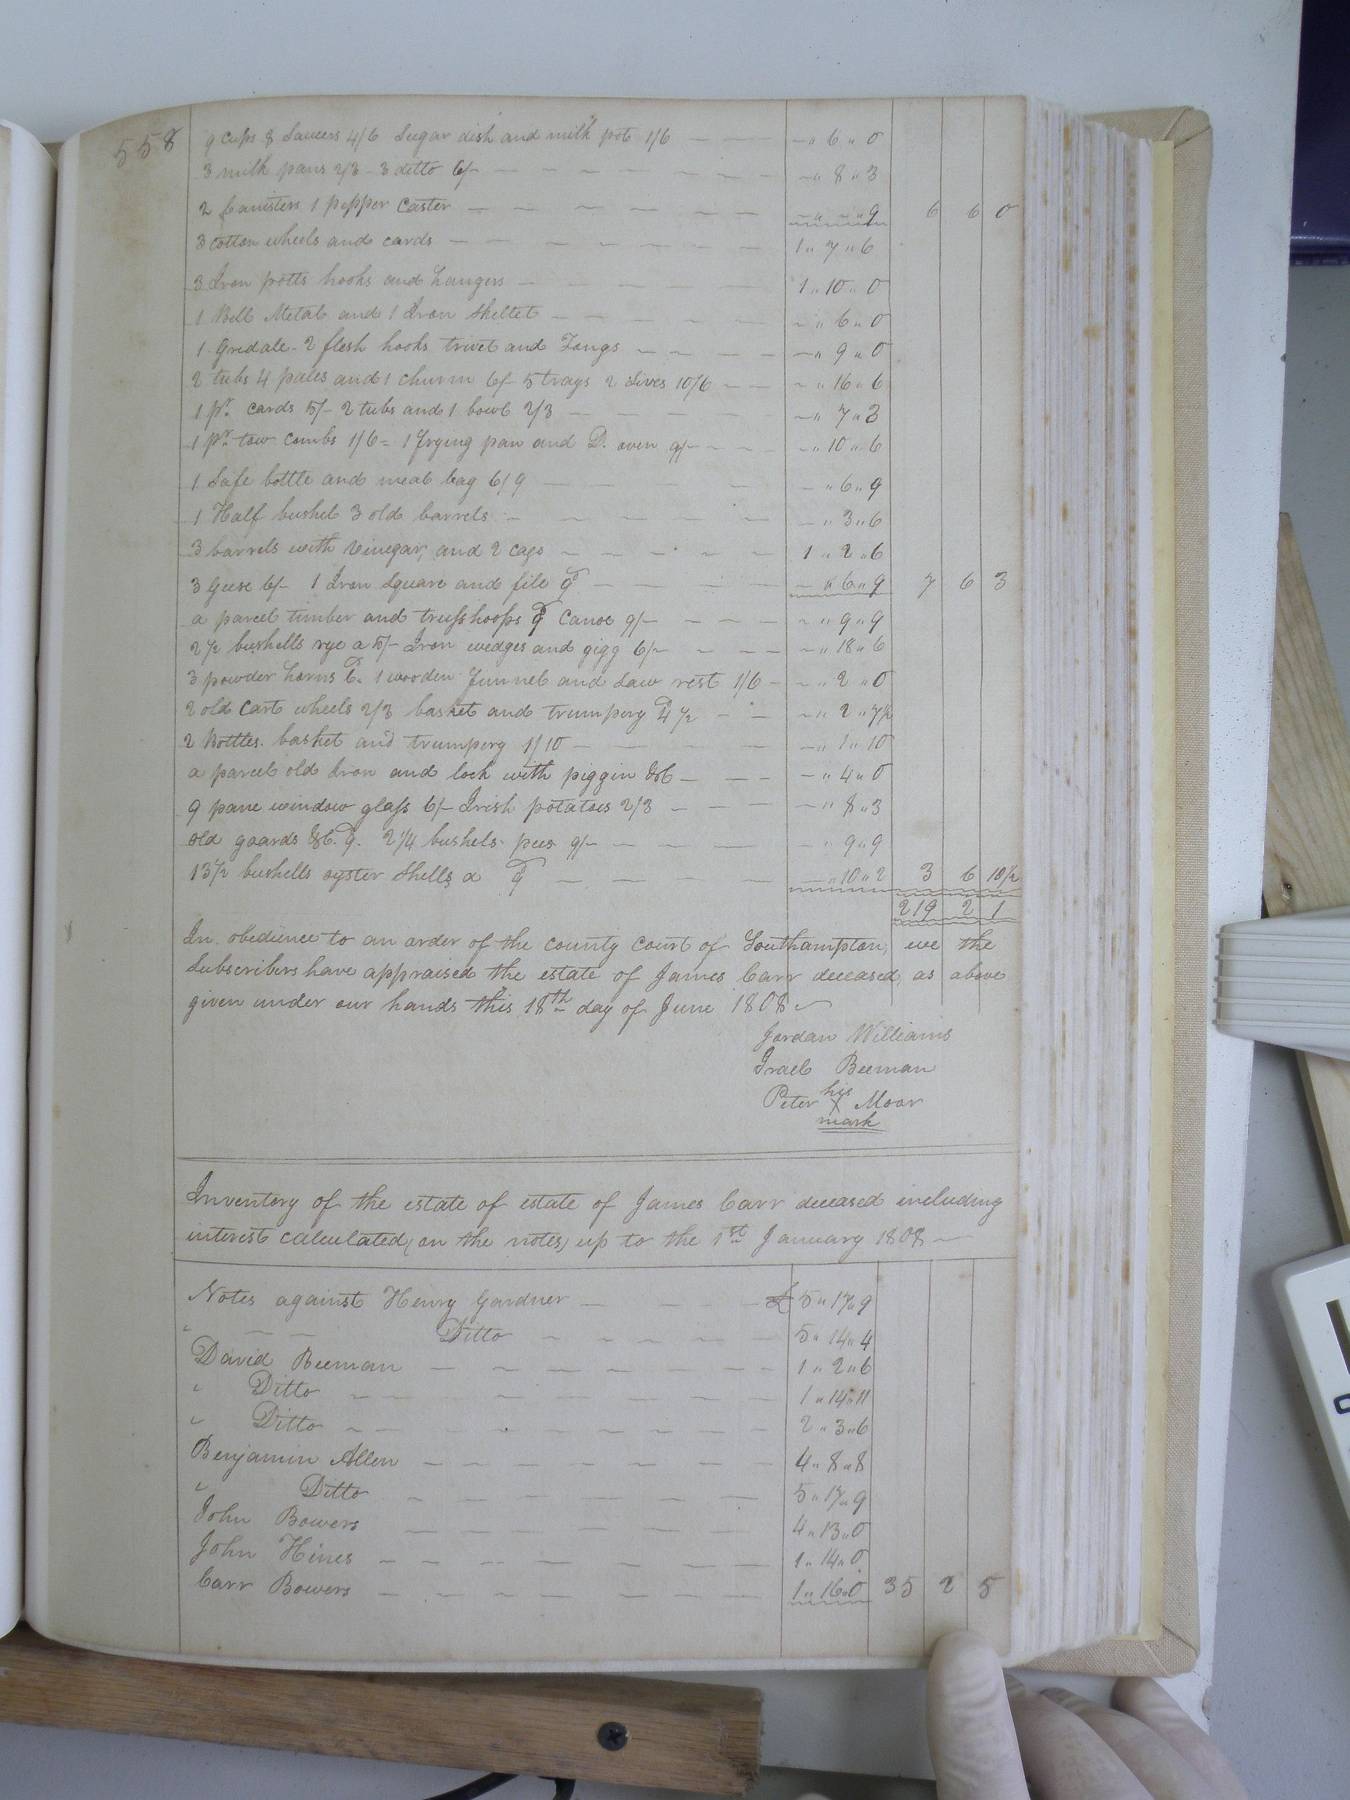 558
9 cups 8 Saucers 4/6 Sugar dish and milk pot 1/6 — — — " 6 " 0
3 milk pans 2/3 - 3 ditto 6/- — " 8 " 3
2 Canisters 1 pepper Caster — " " 9 6 6 0
3 cotton wheels and cards — 1 " 7 " 6
3 Iron potts hooks and hangers — 1 " 10 " 0
1 Bell Metal and 1 Iron Skellet — " 6 " 0
1 Gredale - 2 flesh hooks trivet and Tongs — " 9 " 0
2 tubs 4 pales and 1 churn 6/- 5 trays 2 Sives 10/6 — " 16 " 6
1 pr. cards 5/- 2 tubs and 1 bowl 2/3 — " 7 " 3
1 pr. tow combs 1/6 = 1 frying pan and D. oven 9/- — " 10 " 6
1 Safe bottle and meal bag 6/9 — " 6 " 9
1 Half bushel 3 old barrels — " 3 " 6
3 barrels with Vinegar, and 2 cags — 1 " 2 " 6
3 Geese 6/- 1 Iron Square and file 9d — " 6 " 9 7 6 3
a parcel timber and truss hoops 9d Canoe 9/- — " 9 " 9
2 1/2 bushells rye a 5/- Iron wedges and gigg 6/- — " 18 " 6
3 powder horns 6d. 1 wooden funnel and Saw rest 1/6 — " 2 " 0
2 old Cart wheels 2/3 basket and trumpery 4d 1/2 — " 2 " 7 1/2
2 Bottles. basket and trumpery 1/10 — " 1 " 10
a parcel old Iron and lock with piggin &c — " 4 " 0
9 pane window glass 6/- Irish potatoes 2/3 — " 8 " 3
old goards &c. 9d. 2 1/4 bushels pees 9/- — " 9 " 9
13 1/2 bushells oyster Shells a 9d — " 10 " 2 3 6 10 1/2
219 2 1
In obedience to an order of the county Court of Southampton, we the
Subscribers have appraised the estate of James Carr deceased, as above
given under our hands this 18th day of June 1808
Jordan Williams
Israel Beeman
his
Peter X Moor
mark
Inventory of the estate of estate of James Carr deceased including
interest calculated, (on the notes) up to the 1st January 1808
Notes against Henry Gardner — £ 5 " 17 " 9
" — Ditto — 5 " 14 " 4
David Beeman — 1 " 2 " 6
" Ditto — 1 " 14 " 11
" Ditto — 2 " 3 " 6
Benjamin Allen — 4 " 8 " 8
" Ditto — 5 " 17 " 9
John Bowers — 4 " 13 " 0
John Hines — 1 " 14 " 0
Carr Bowers — 1 " 16 " 0 35 2 5